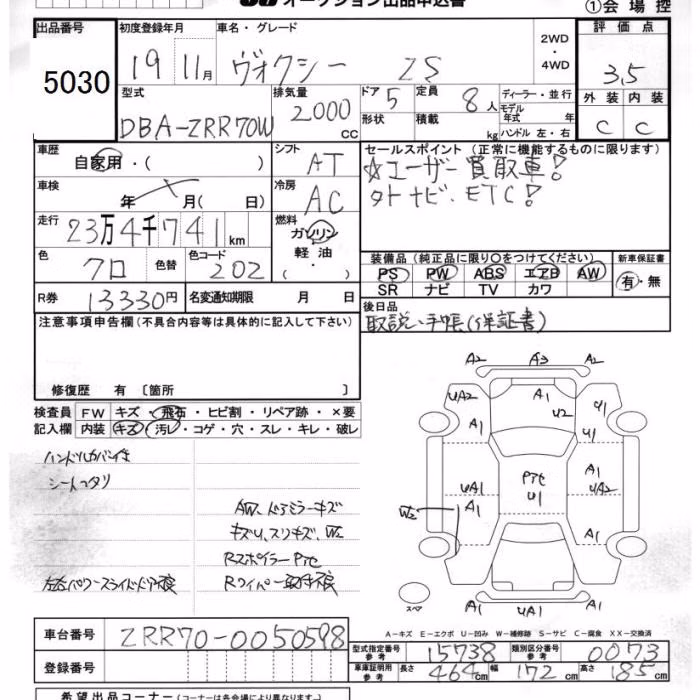 オークション出品申込書
①会場控
出品番号 5030
初度登録年月 19 11月
車名・グレード ヴォクシー ZS
2WD・4WD
評価点 3.5
外装 内装
C C
型式 DBA-ZRR70W
排気量 2000 cc
ドア 5 形状
定員 8人 積載 kg
ディーラー・並行
モデル年式 年
ハンドル 左・右
車歴 自家用・( )
シフト AT
セールスポイント (正常に機能するものに限ります)
☆ユーザー買取車!
外ナビ.ETC!
車検 年 月( 日)
冷房 AC
走行 23万4千741km
燃料 ガソリン 軽油 ( ・ )
色 クロ 色替 色コード 202
装備品 (純正品に限り○をつけてください)
PS PW ABS エアB AW
SR ナビ TV カワ
新車保証書
有・無
R券 13330円 名変通知期限 月 日
後日品
取説・手帳(保証書)
注意事項申告欄(不具合内容等は具体的に記入して下さい)
修復歴 有〔箇所 〕
検査員 FW キズ・飛石・ヒビ割・リペア跡・×要
記入欄 内装 キズ・汚レ・コゲ・穴・スレ・キレ・破レ
ハンドルカバイキ
シートヘタリ
AW、ドアミラーキズ
キズU、スリキズ、W2
RスポイラーPハゲ
左右パワースライドドア不良
Rワイパー取付不良
A2 A3 A2
UA2 A1 U2 U1
A1 U1
A1
UA1 Pハゲ U1 A1 UA2
W2 A1 A1
A1
スペア
A-キズ E-エクボ U-凹み W-補修跡 S-サビ C-腐食 XX-交換済
車台番号 ZRR70-0050598
登録番号
型式指定番号 参考 15738 類別区分番号 参考 0073
車庫証明用 参考 長さ 464cm 幅 172cm 高さ 185cm
希望出品コーナー(コーナーは各会場により異なります。)